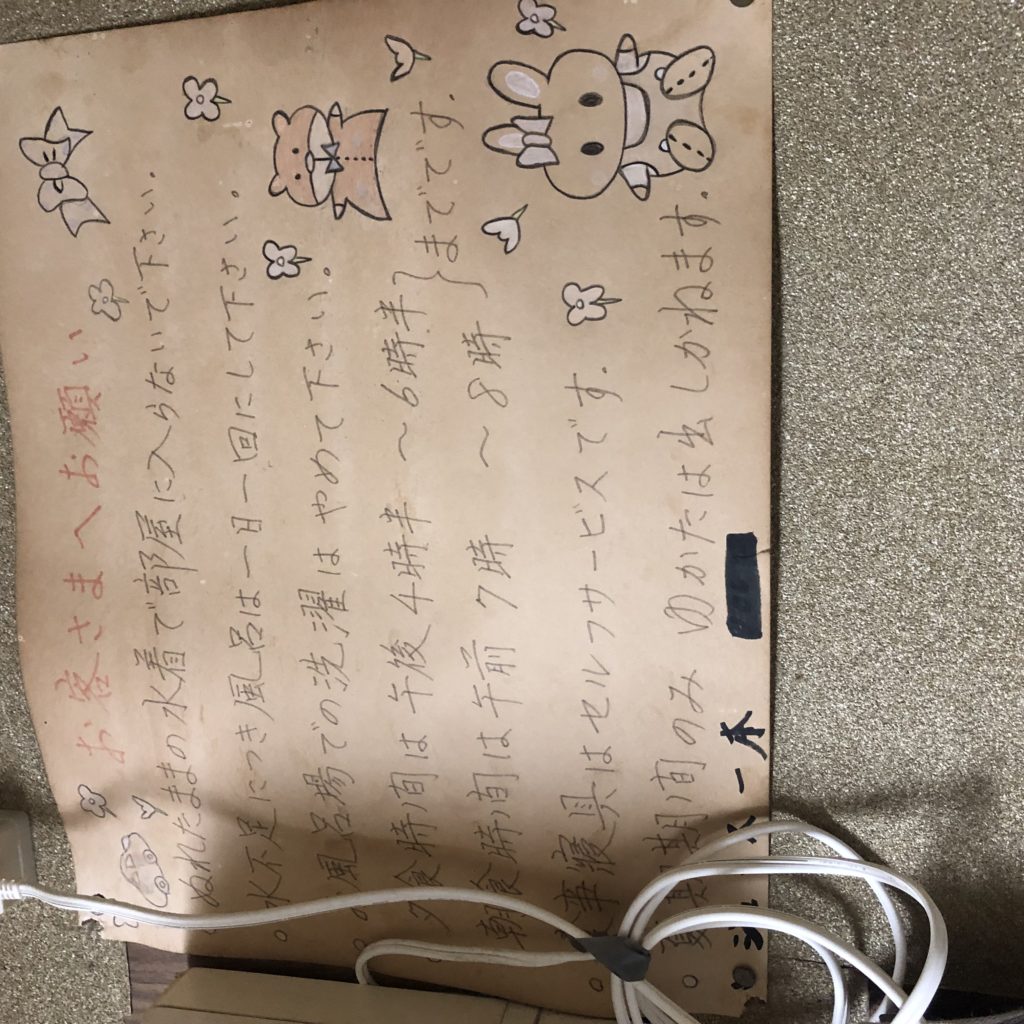 お客さまへお願い
○ ぬれたままの水着で部屋に入らないで下さい。
○ 水不足につき風呂は一日一回にして下さい。
○ 風呂場での洗濯はやめて下さい。
○ 夕食時間は午後4時半 〜 6時半
朝食時間は午前 7時 〜 8時 } までです.
○ 寝具はセルフサービスです.
○ 夏期間のみ ゆかたは出しかねます.
一本